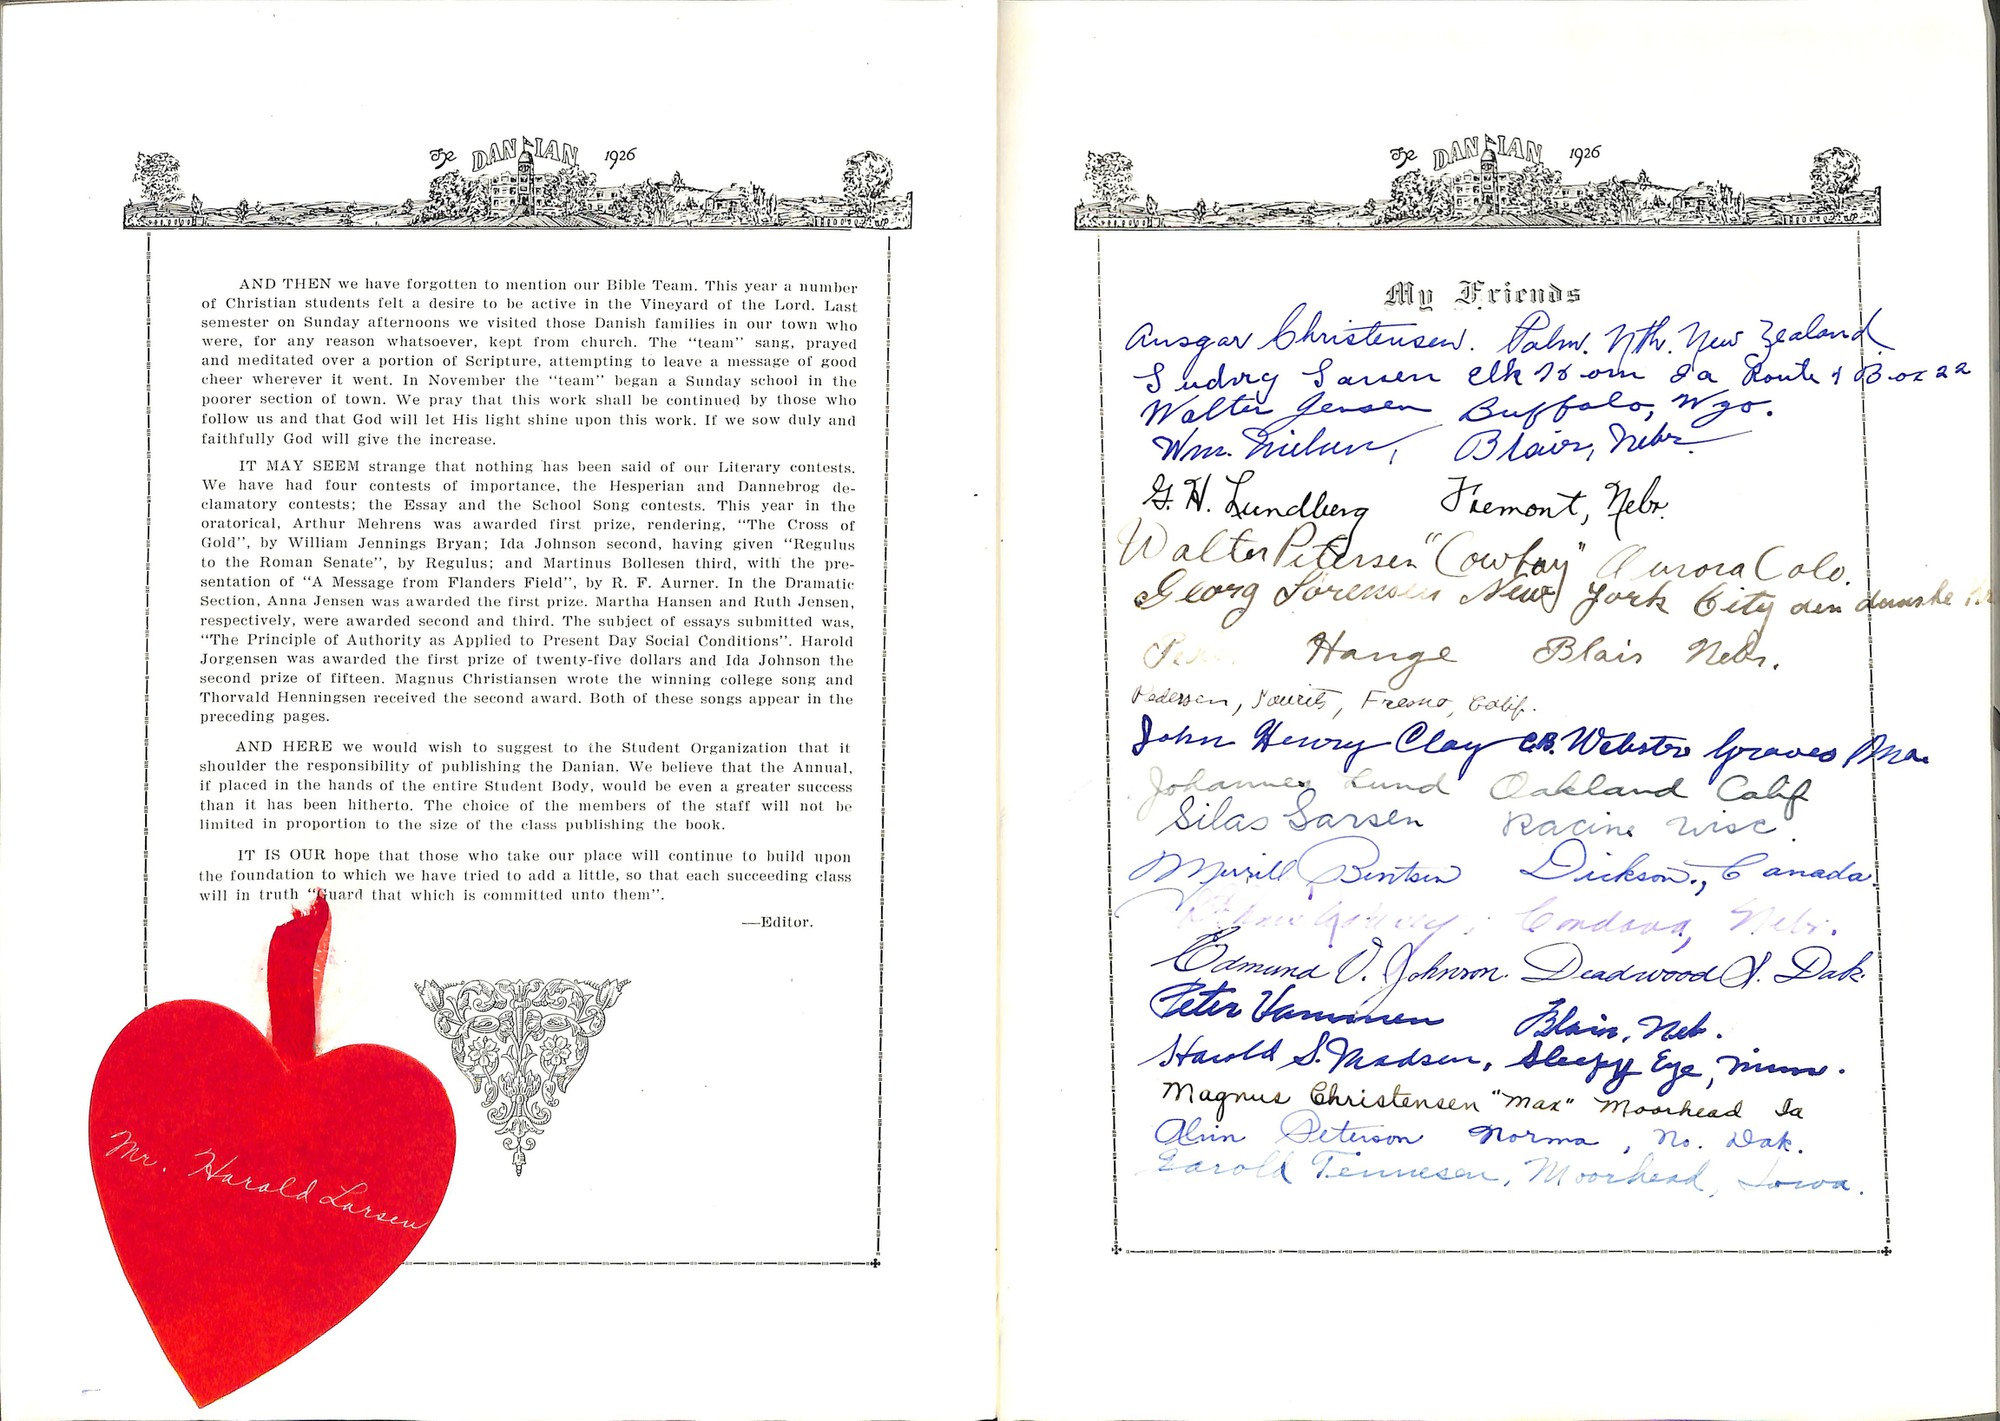 The DANIAN 1926
AND THEN we have forgotten to mention our Bible Team. This year a number
of Christian students felt a desire to be active in the Vineyard of the Lord. Last
semester on Sunday afternoons we visited those Danish families in our town who
were, for any reason whatsoever, kept from church. The “team” sang, prayed
and meditated over a portion of Scripture, attempting to leave a message of good
cheer wherever it went. In November the “team” began a Sunday school in the
poorer section of town. We pray that this work shall be continued by those who
follow us and that God will let His light shine upon this work. If we sow duly and
faithfully God will give the increase.
IT MAY SEEM strange that nothing has been said of our Literary contests.
We have had four contests of importance, the Hesperian and Dannebrog de-
clamatory contests; the Essay and the School Song contests. This year in the
oratorical, Arthur Mehrens was awarded first prize, rendering, “The Cross of
Gold”, by William Jennings Bryan; Ida Johnson second, having given “Regulus
to the Roman Senate”, by Regulus; and Martinus Bollesen third, with the pre-
sentation of “A Message from Flanders Field”, by R. F. Aurner. In the Dramatic
Section, Anna Jensen was awarded the first prize. Martha Hansen and Ruth Jensen,
respectively, were awarded second and third. The subject of essays submitted was,
“The Principle of Authority as Applied to Present Day Social Conditions”. Harold
Jorgensen was awarded the first prize of twenty-five dollars and Ida Johnson the
second prize of fifteen. Magnus Christiansen wrote the winning college song and
Thorvald Henningsen received the second award. Both of these songs appear in the
preceding pages.
AND HERE we would wish to suggest to the Student Organization that it
shoulder the responsibility of publishing the Danian. We believe that the Annual,
if placed in the hands of the entire Student Body, would be even a greater success
than it has been hitherto. The choice of the members of the staff will not be
limited in proportion to the size of the class publishing the book.
IT IS OUR hope that those who take our place will continue to build upon
the foundation to which we have tried to add a little, so that each succeeding class
will in truth “Guard that which is committed unto them”.
—Editor.
Mr. Harold Larsen
The DANIAN 1926
My Friends
Ansgar Christensen. Palm. Nth. New Zealand.
Ludvig Larsen Elk Horn Ia Route 1 Box 22
Walter Jensen Buffalo, Wyo.
Wm. Nielsen, Blair, Nebr.
G. H. Lundberg Fremont, Nebr.
Walter Petersen "Cowboy" Aurora Colo.
Georg Sorensen New York City den danske
Hange Blair Nebr.
Pedersen, Fresno, Calif.
John Henry Clay Webster Graves
Johannes Lund Oakland Calif
Silas Larsen Racine Wisc.
Merrill Bentsen Dickson., Canada
Cordova, Nebr.
Edmund V. Johnson. Deadwood S. Dak
Peter Blair, Neb.
Harold S. Madsen, Sleepy Eye, Minn.
Magnus Christensen "Max" Moorhead Ia
Alvin Peterson Norma, No. Dak.
Harold Tennesen, Moorhead, Iowa.